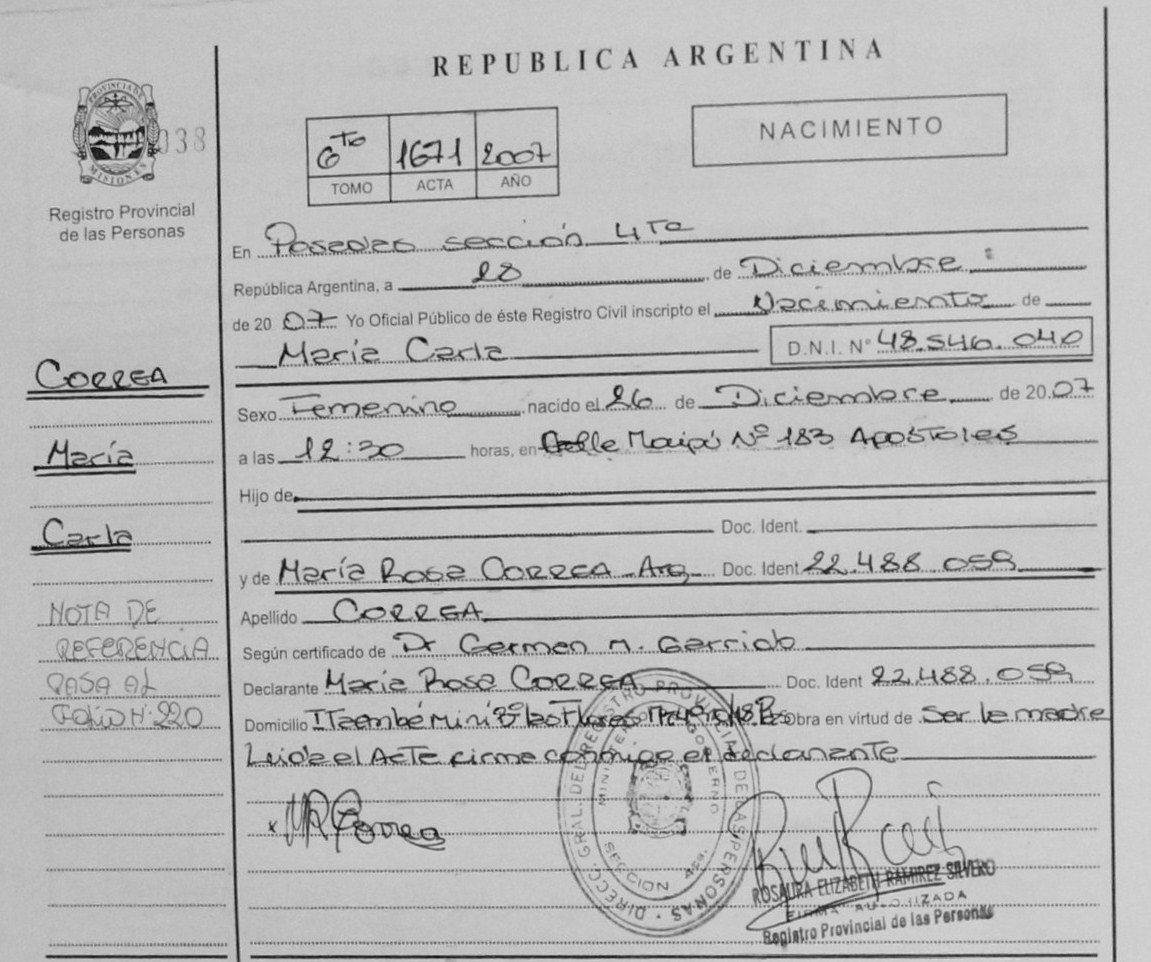 REPUBLICA ARGENTINA
PROVINCIA DE
MISIONES
038
Registro Provincial
de las Personas
6to 1671 2007
TOMO ACTA AÑO
NACIMIENTO
En Posadas sección 4Ta
República Argentina, a 28 de Diciembre
de 2007 Yo Oficial Público de éste Registro Civil inscripto el Nacimiento de
María Carla D.N.I. Nº 48.546.040
Sexo Femenino nacido el 26 de Diciembre de 2007
a las 12:30 horas, en Calle Maipú Nº 183 Apóstoles
Hijo de
Doc. Ident.
y de María Rosa CORREA Arg. Doc. Ident 22.488.059
Apellido CORREA
Según certificado de Dr German M. Garrido
Declarante María Rosa CORREA Doc. Ident 22.488.059
Domicilio ITaembé Mini Bº Las Flores Obra en virtud de Ser la madre
Leida el Acta firma conmigo el declarante
CORREA
María
Carla
NOTA DE
REFERENCIA
PASA AL
FOLIO Nº 220
x MRCorrea
DIRECC. GRAL. DEL REGISTRO PROVINCIAL DE LAS PERSONAS
MINISTERIO GOBIERNO
SECCION 4ta.
ROSAURA ELIZABETH RAMIREZ SILVERO
FIRMA AUTORIZADA
Registro Provincial de las Personas